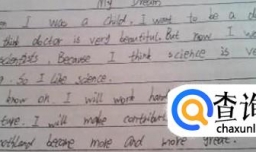 My dream
I was a child, I want to be a
think doctor is very beautiful. But now I
scientists, Because I think science is ve
So I like science.
know ok. I will work hard
ture. I will make contribut
motherland become more and more great.
查询
chaxunl